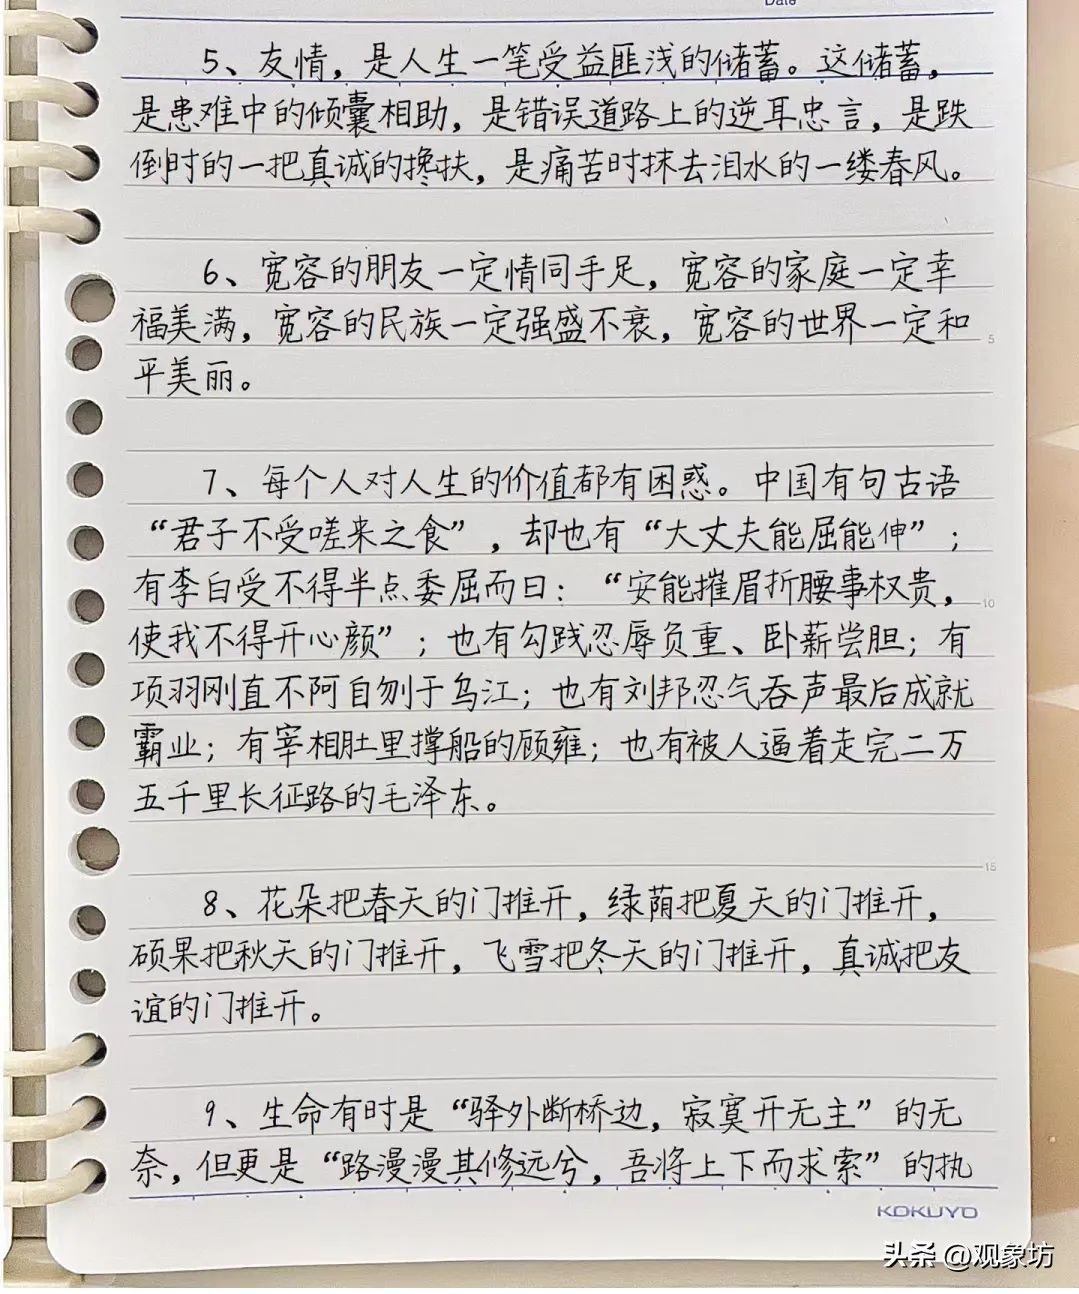 Date
5、友情，是人生一笔受益匪浅的储蓄。这储蓄，
是患难中的倾囊相助，是错误道路上的逆耳忠言，是跌
倒时的一把真诚的搀扶，是痛苦时抹去泪水的一缕春风。
6、宽容的朋友一定情同手足，宽容的家庭一定幸
福美满，宽容的民族一定强盛不衰，宽容的世界一定和
5
平美丽。
7、每个人对人生的价值都有困惑。中国有句古语
“君子不受嗟来之食”，却也有“大丈夫能屈能伸”；
有李白受不得半点委屈而曰：“安能摧眉折腰事权贵，
10
使我不得开心颜”；也有勾践忍辱负重、卧薪尝胆；有
项羽刚直不阿自刎于乌江；也有刘邦忍气吞声最后成就
霸业；有宰相肚里撑船的顾雍；也有被人逼着走完二万
五千里长征路的毛泽东。
15
8、花朵把春天的门推开，绿荫把夏天的门推开，
硕果把秋天的门推开，飞雪把冬天的门推开，真诚把友
谊的门推开。
9、生命有时是“驿外断桥边，寂寞开无主”的无
奈，但更是“路漫漫其修远兮，吾将上下而求索”的执
KOKUYO
头条 @观象坊